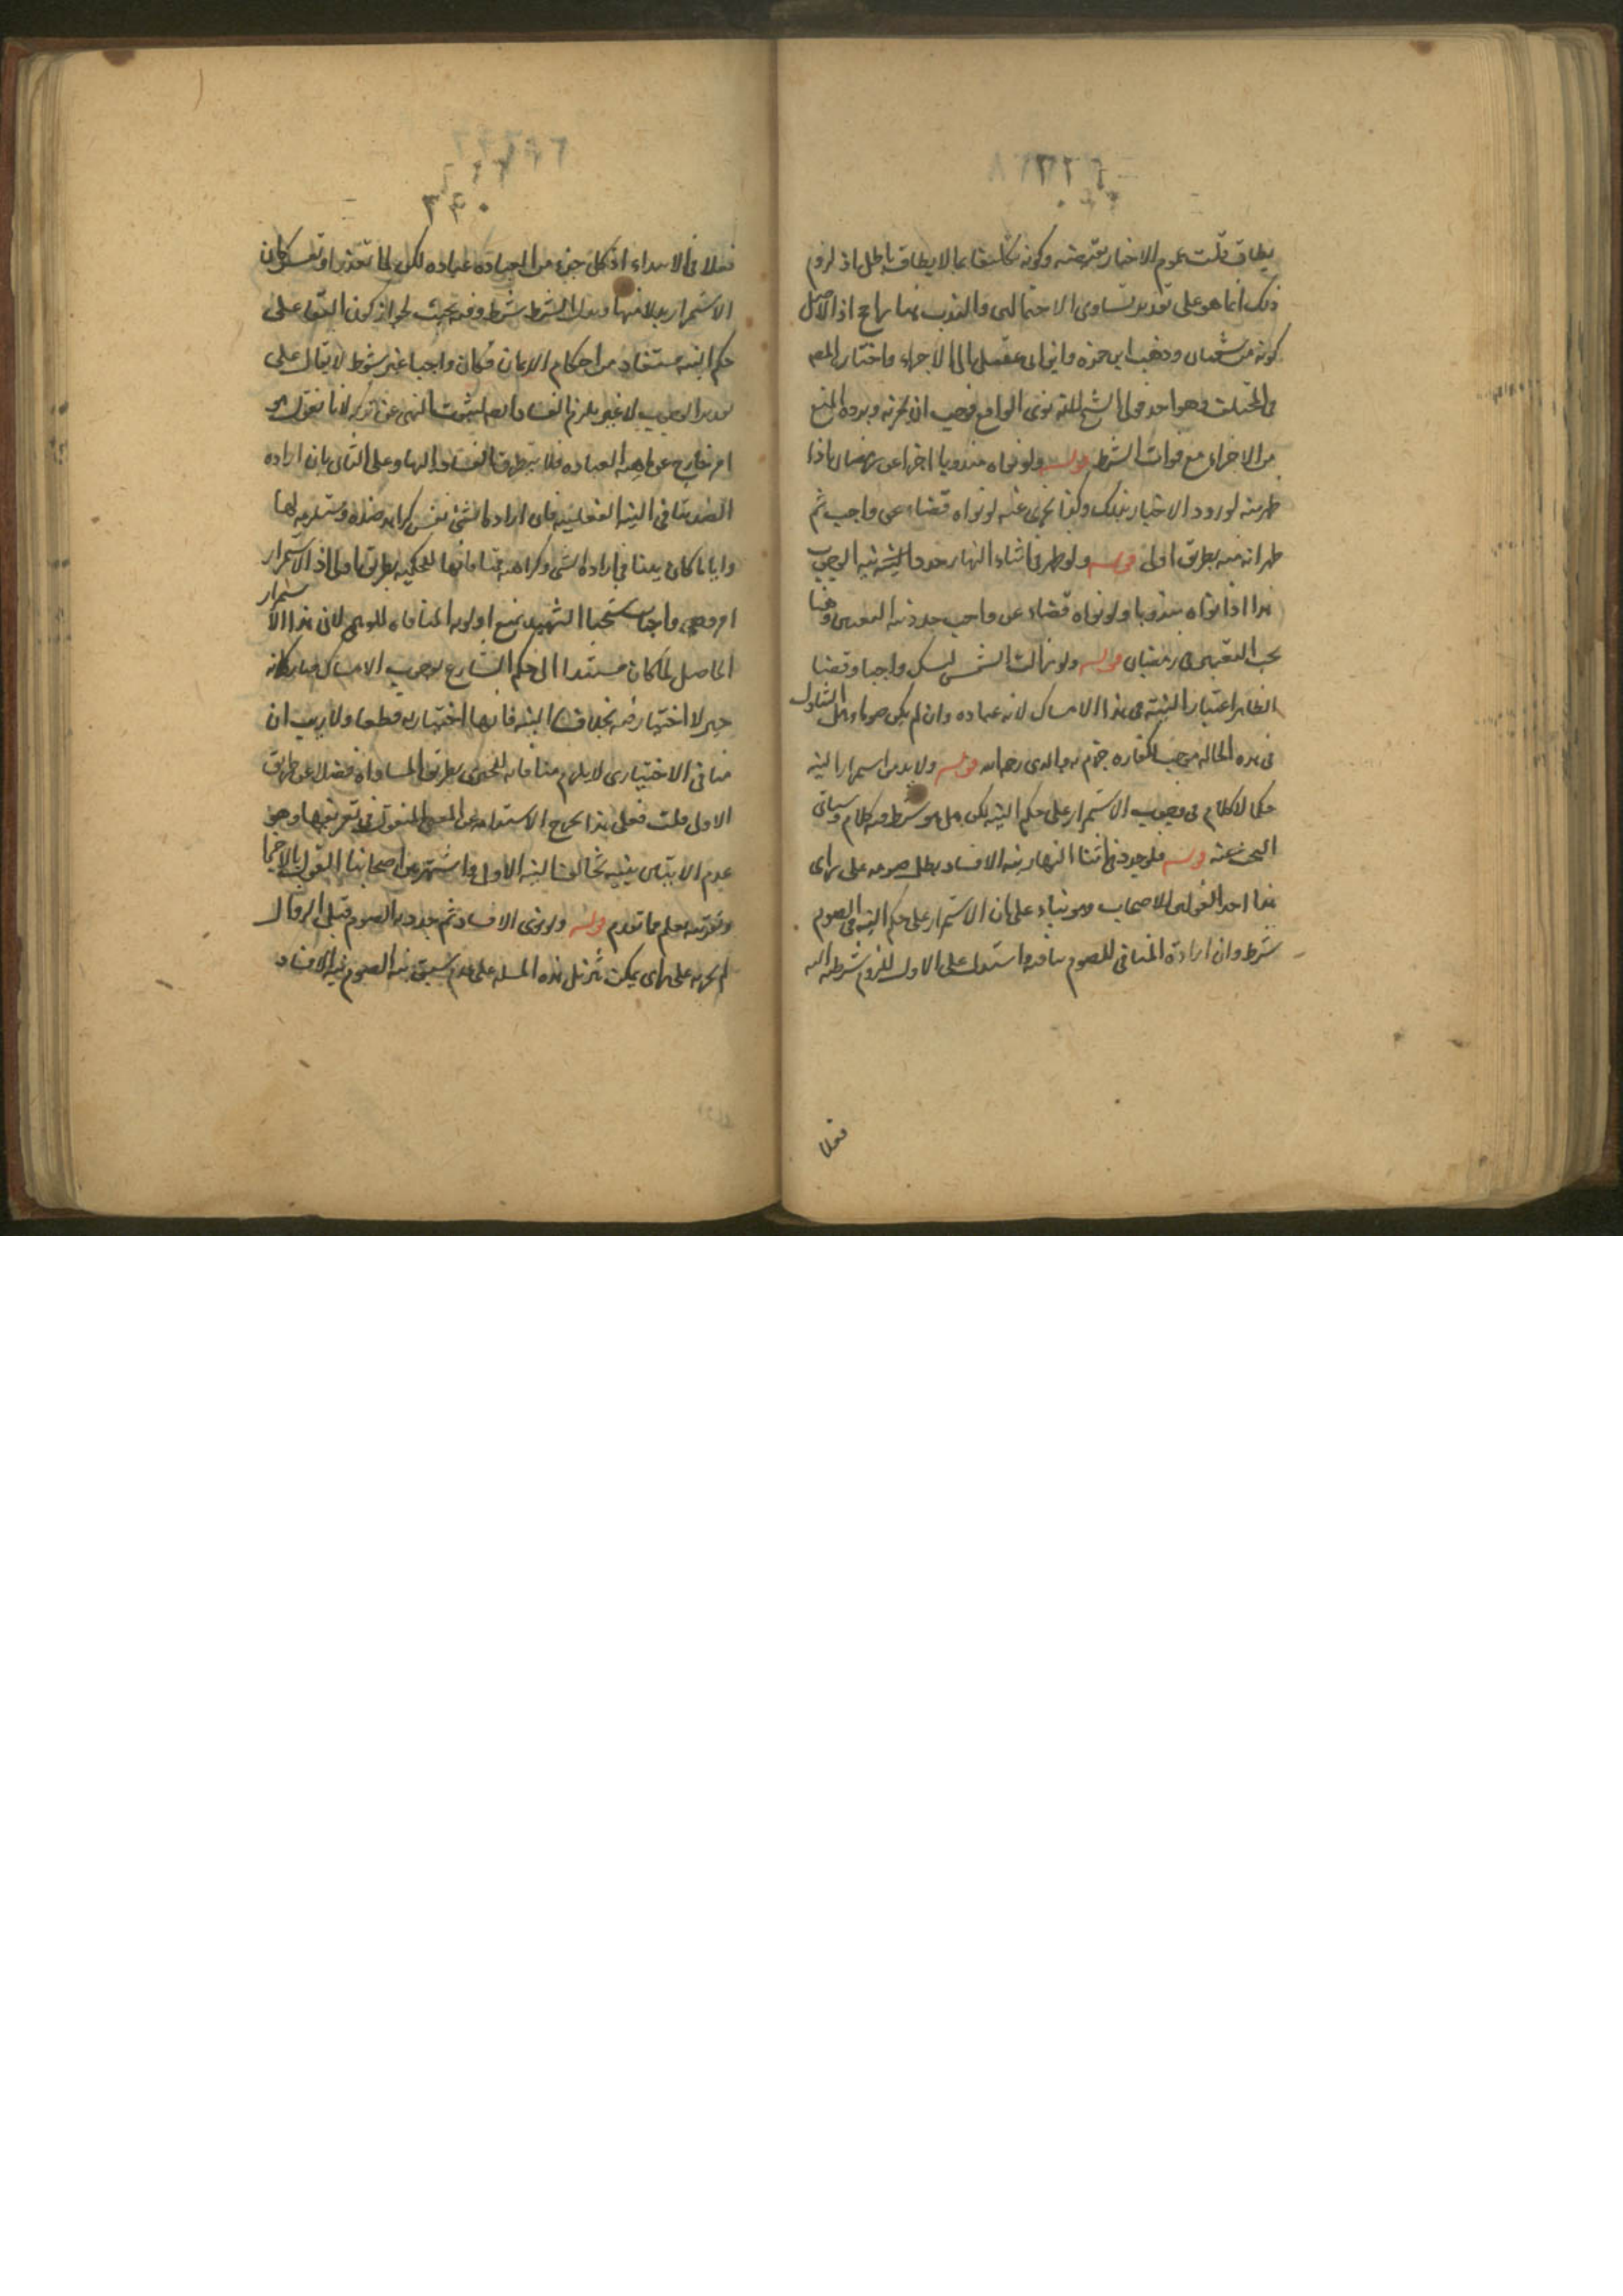 يطاق قلت عموم الاخبار يقتضيه وكونه تكليفا بما لا يطاق باطل اذ لزوم
ذلك انما هو على تقدير تساوى الاحتمالين والندب هنا راجح اذ الاصل
كونه من شعبان وذهب ابن حمزه وابن ابى عقيل الى الاجزاء واختاره المصـ
فى المختلف وهو احد قولى الشيخ لانه نوى الواقع فوجب ان يجزيه ويرده المنع
من الاجزاء مع فوات الشرط قوله ولو نواه مندوبا اجزا عن رمضان اذا
ظهر منه لورود الاخبار بذلك وكذا يجزى عنه لو نواه قضاء عن واجب ثم
ظهر انه منه بطريق اولى قوله ولو ظهر فى اثناء النهار جدد نية الوجوب
هذا اذا نواه مندوبا ولو نواه قضاء عن واجب جدد نيه التعيين وهنا
يجب التعيين فى رمضان قوله ولو زالت الشمس امسك واجبا وقضا
الظاهر اعتبار النيته فى هذا الامساك لانه عباده وان لم يكن صوما وهل التناول
فى هذه الحاله موجب للكفاره جزم به والدى رحمه الله قوله ولا بد من استمرار النيه
حكما لا كلام فى وجوب الاستمرار على حكم النيه لكن هل هو شرط فيه كلام وسياتى
البحث عنه قوله فلو جدد فى اثناء النهار نيه الافساد بطل صومه على راى
هذا احد القولين للاصحاب وهو بناء على ان الاستمرار على حكم النيه فى الصوم
شرط وان ارادة المنافى للصوم ينافيه واستدل على الاول للزوم شرطيه النيه
فعلا
٣٩٠
فعلا فى الابتداء اذ كل جزء من العباده عباده لكن لما تعذر او تعسر كان
الاستمرار بدلا منها وبدل الشرط شرط وفيه بحث لجواز كون البقاء على
حكم النيه مستفاد من احكام الايمان فكان واجبا غير شرط لا يقال على
تقدير الوجوب لا غير يلزم الفساد ايضا لثبوت النهى عن تركه لانا نقول هو
امر خارج عن ماهيه العباده فلا يتطرق الفساد اليها وعلى الثانى بان اراده
الضد ينافى النيه الفعليه فان اراده الشئ نفس كراهه ضده ومستلزمه لها
وايا ما كان يتنافى اراده الشى وكراهته فمنافاتها للحكميه بطريق اولى اذ الاستمرار
امر وهمى واجاب شيخنا الشهيد بمنع اولويه المنافاه للوهمى لان هذا الاستمرار
الحاصل لما كان مستندا الى حكم الشارع بوجوب الامساك صار كانه
جبر لا اختيار فيه بخلاف النيه فانها اختياريه قطعا ولا ريب ان
منافى الاختيارى لا يلزم منافاته للجبرى بطريق المساواه فضلا عن طريق
الاولى قلت فعلى هذا يخرج الاستدامه عن المعنى المنقول فى تعريفها وهو
عدم الاتيان بنيه تخالف النيه الاولى واشتهر عن اصحابنا القول بالاجزا
وتقريبه يعلم مما تقدم قوله ولو نوى الافساد ثم جدد نيه الصوم قبل الزوال
لم يجزه على راى يمكن تنزيل هذه المسله على عدم سبق نيه الصوم نيه الافساد